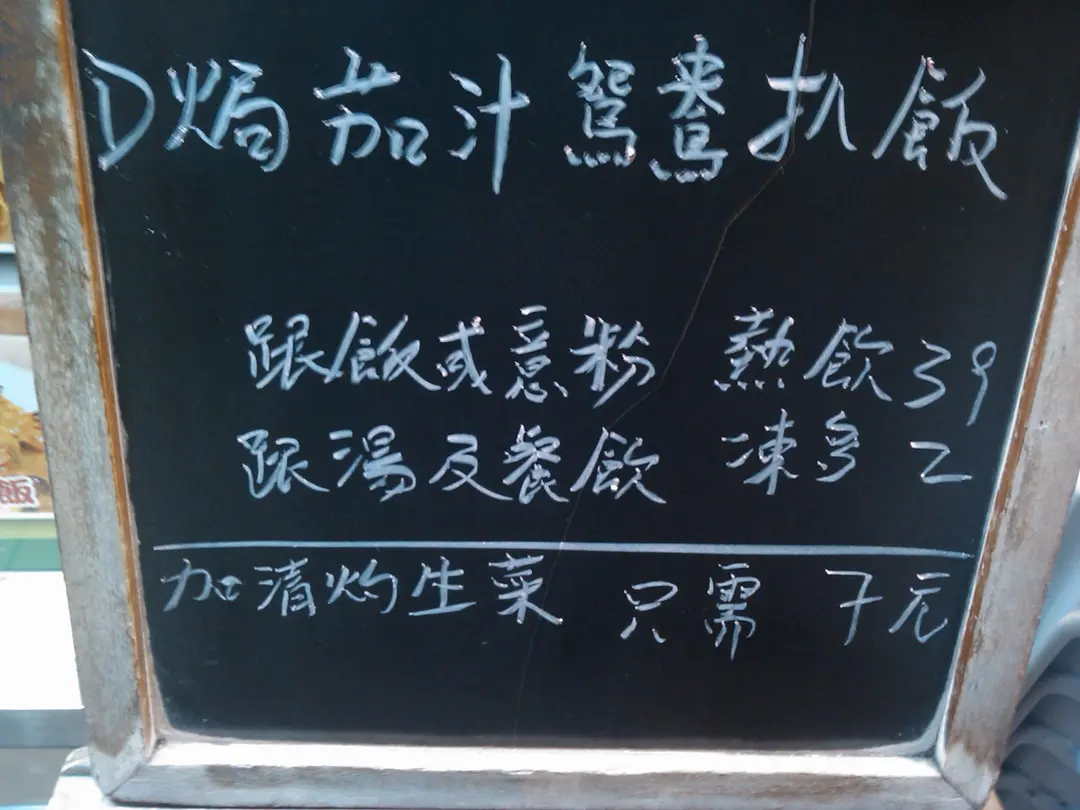 D焗茄汁鴛鴦扒飯
跟飯或意粉 熱飲39
跟湯及餐飲 凍多2
加清灼生菜 只需 7元
飯